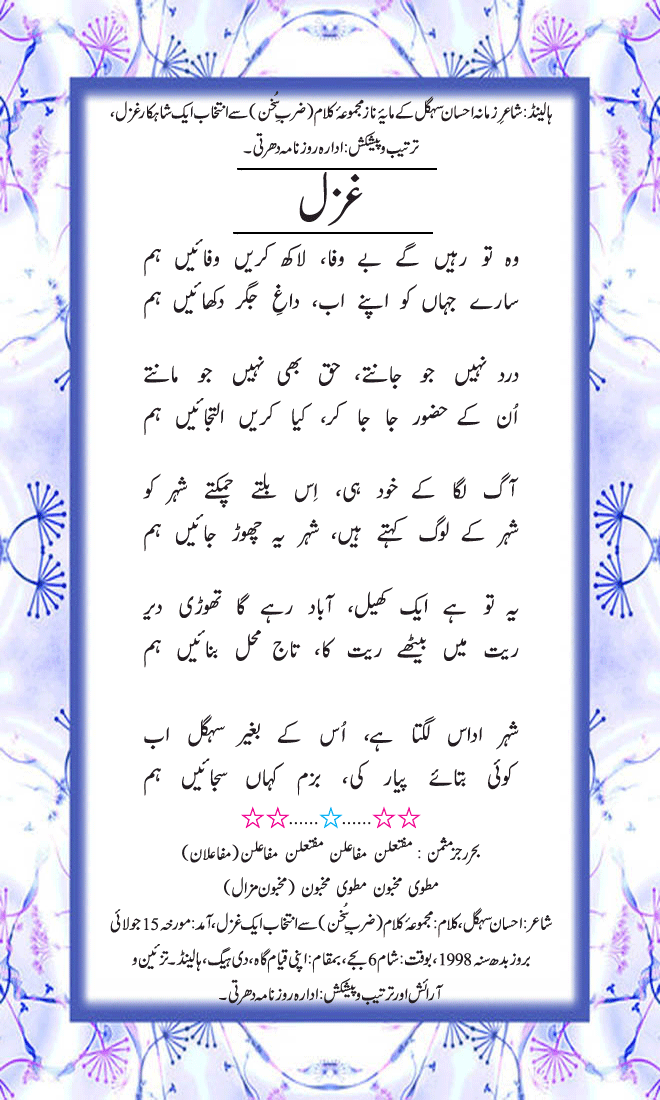 ہالینڈ: شاعرِ زمانہ احسان سہگل کے مایۂ ناز مجموعۂ کلام (ضربِ سُخن) سے انتخاب ایک شاہکار غزل،
ترتیب و پیشکش: ادارہ روزنامہ دھرتی۔
غزل
وہ تو رہیں گے بے وفا، لاکھ کریں وفائیں ہم
سارے جہاں کو اپنے اب، داغِ جگر دکھائیں ہم
درد نہیں جو جانتے، حق بھی نہیں جو مانتے
اُن کے حضور جا جا کر، کیا کریں التجائیں ہم
آگ لگا کے خود ہی، اِس بلتے چمکتے شہر کو
شہر کے لوگ کہتے ہیں، شہر یہ چھوڑ جائیں ہم
یہ تو ہے ایک کھیل، آباد رہے گا تھوڑی دیر
ریت میں بیٹھے ریت کا، تاج محل بنائیں ہم
شہر اداس لگتا ہے، اُس کے بغیر سہگل اب
کوئی بتائے پیار کی، بزم کہاں سجائیں ہم
☆☆......☆......☆☆
بحر رجز مثمن : مفتعلن مفاعلن مفتعلن مفاعلن (مفاعلان)
مطوی مخبون مطوی مخبون (مخبون مزال)
شاعر: احسان سہگل، کلام: مجموعۂ کلام (ضربِ سُخن) سے انتخاب ایک غزل، آمد: مورخہ 15 جولائی
بروز بدھ سنہ 1998، بوقت: شام 6 بجے، بمقام: اپنی قیام گاہ، دی ہیگ، ہالینڈ۔ تزئین و
آرائش اور ترتیب و پیشکش: ادارہ روزنامہ دھرتی۔